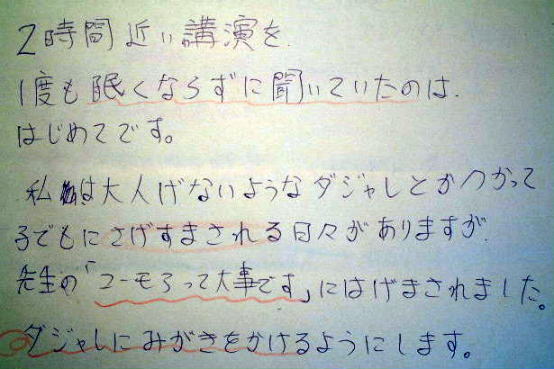 2時間近い講演を
1度も眠くならずに聞いていたのは.
はじめてです。
私は大人げないようなダジャレとかつかって
子どもにさげすまされる日々がありますが.
先生の「ユーモアって大事です」にはげまされました。
ダジャレにみがきをかけるようにします。